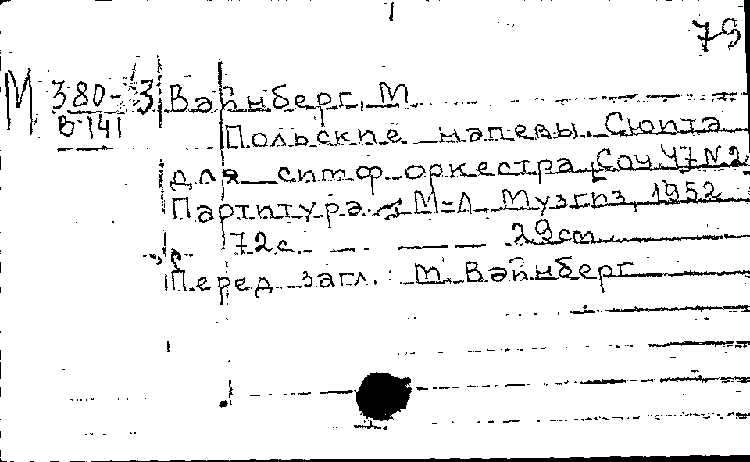 79
М 380-3 Вайнберг, М
В-141
Польские напевы. Сюита
для симф оркестра, Соч. 47 N 2
Партитура М-Л, Музгиз, 1952
72с. 29см
Перед загл.: М. Вайнберг